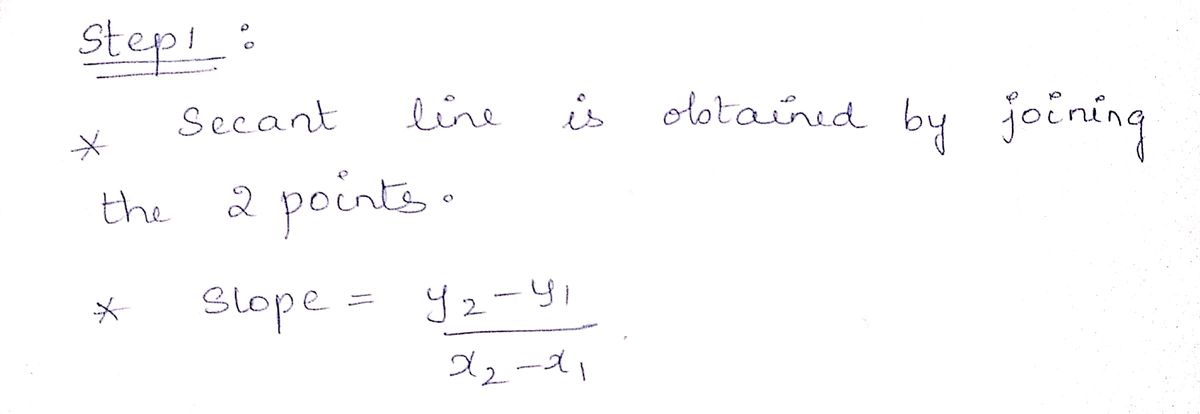 Step1 :
* Secant line is obtained by joining
the 2 points.
* Slope = y₂-y₁
x₂-x₁